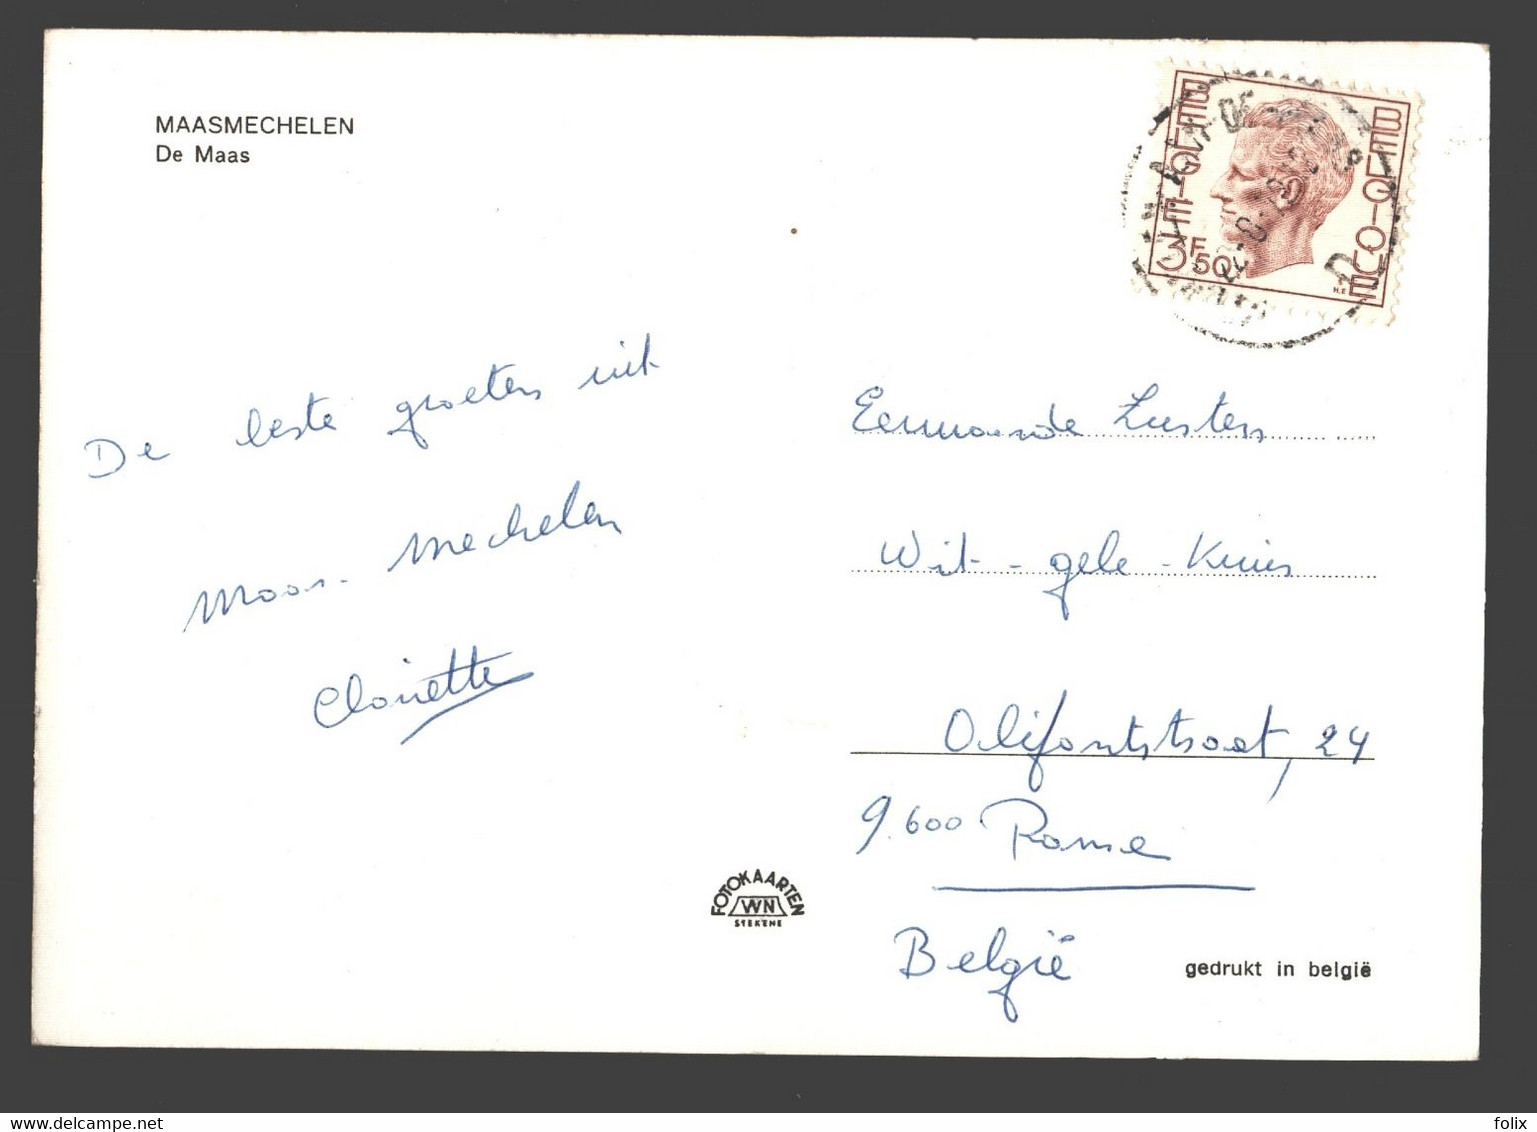 MAASMECHELEN
De Maas
BELGIE
BELGIQUE
3F50
De beste groeten uit
Maas-Mechelen
Clariette
Eerwaarde Zusters
Wit-gele-Kruis
Olifantstraat, 24
9.600 Ronse
België
FOTOKAARTEN
VVN
STEKENE
gedrukt in belgië
folix